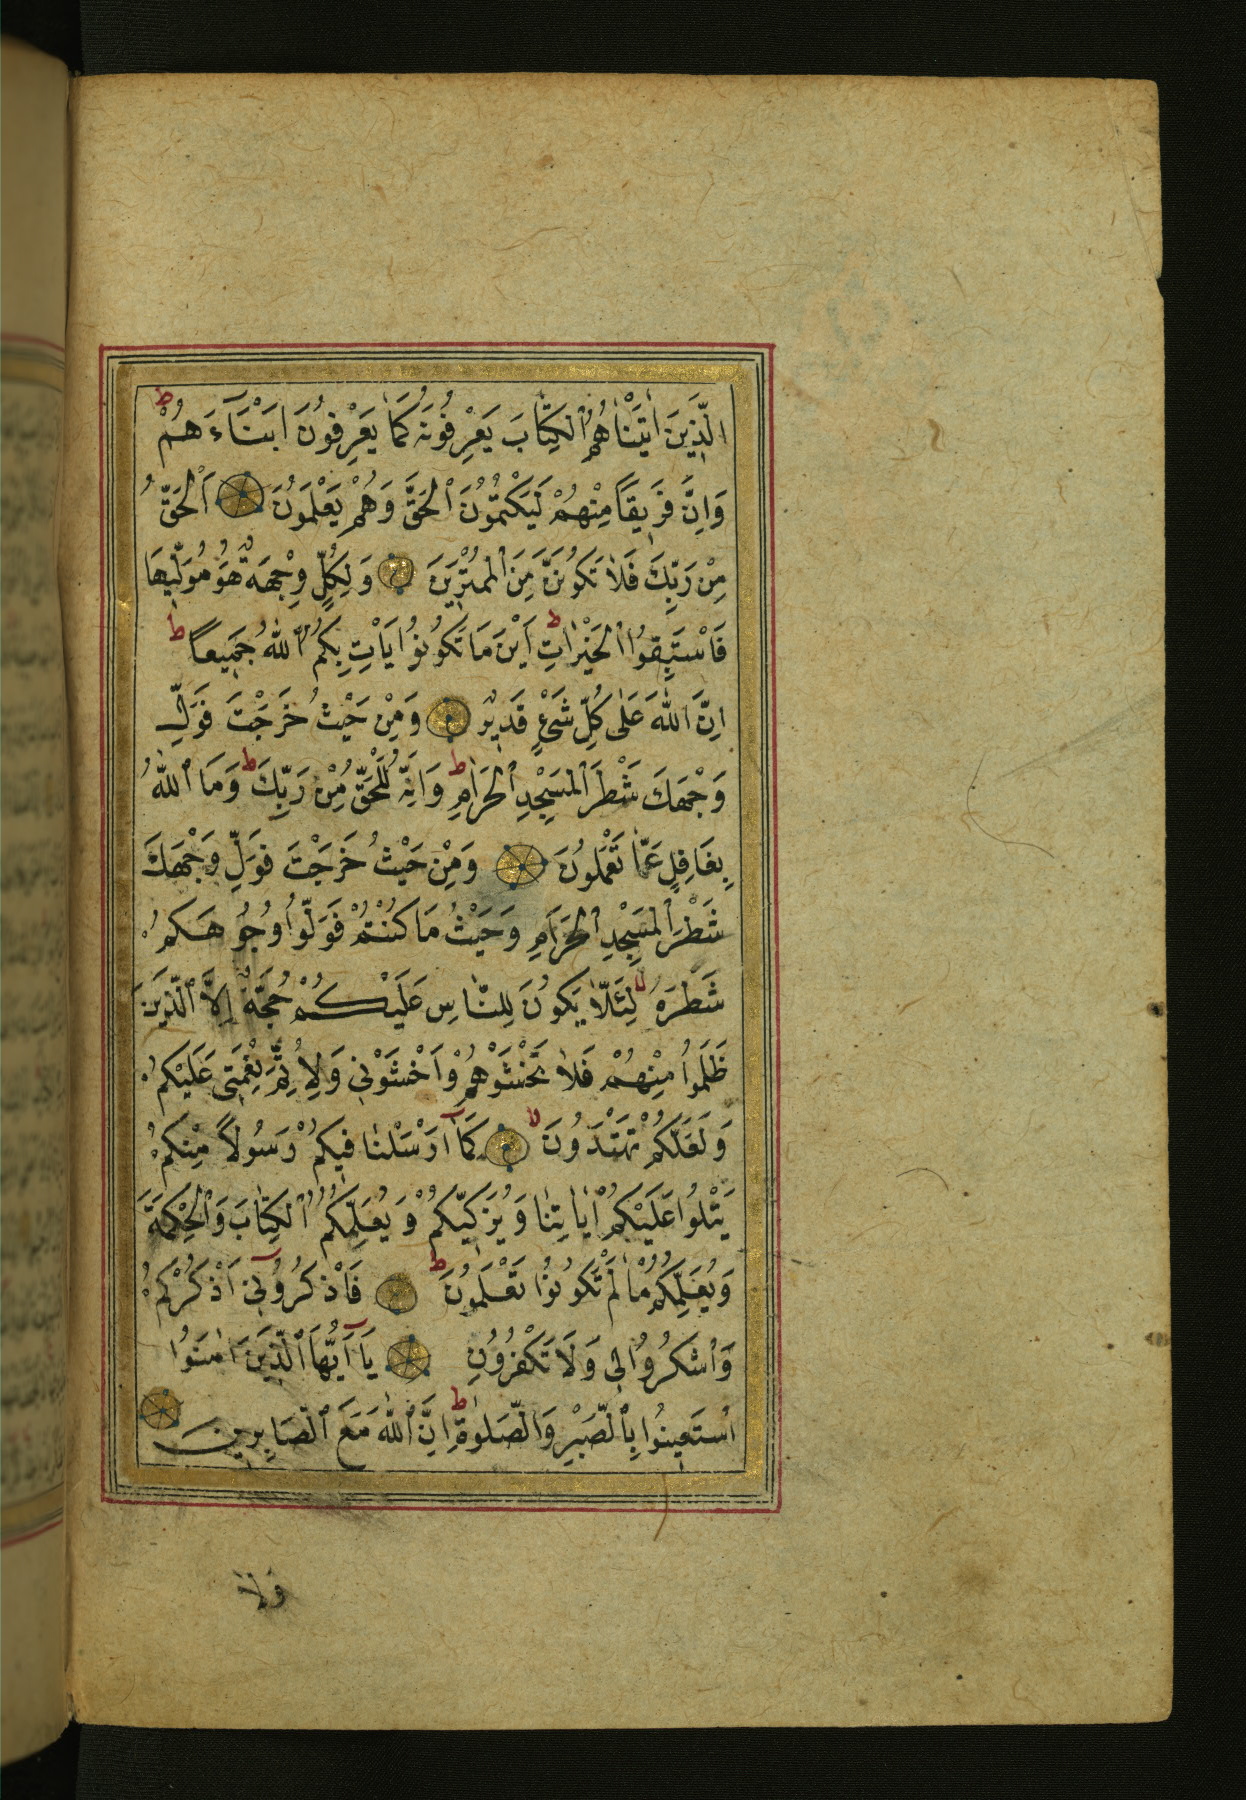 الَّذِينَ اٰتَيْنَاهُمُ الْكِتَابَ يَعْرِفُونَهُ كَمَا يَعْرِفُونَ اَبْنَآءَهُمْ ط
وَاِنَّ فَرِيقًا مِنْهُمْ لَيَكْتُمُونَ الْحَقَّ وَهُمْ يَعْلَمُونَ اَلْحَقُّ
مِنْ رَبِّكَ فَلَا تَكُونَنَّ مِنَ الْمُمْتَرِينَ وَلِكُلٍّ وِجْهَةٌ هُوَ مُوَلِّيهَا
فَاسْتَبِقُوا الْخَيْرَاتِ ط اَيْنَ مَا تَكُونُوا يَاْتِ بِكُمُ اللّٰهُ جَمِيعًا ط
اِنَّ اللّٰهَ عَلٰى كُلِّ شَىْءٍ قَدِيرٌ وَمِنْ حَيْثُ خَرَجْتَ فَوَلِّ
وَجْهَكَ شَطْرَ الْمَسْجِدِ الْحَرَامِ ط وَاِنَّهُ لَلْحَقُّ مِنْ رَبِّكَ ط وَمَا اللّٰهُ
بِغَافِلٍ عَمَّا تَعْمَلُونَ وَمِنْ حَيْثُ خَرَجْتَ فَوَلِّ وَجْهَكَ
شَطْرَ الْمَسْجِدِ الْحَرَامِ وَحَيْثُ مَا كُنْتُمْ فَوَلُّوا وُجُوهَكُمْ
شَطْرَهُ لا لِئَلَّا يَكُونَ لِلنَّاسِ عَلَيْكُمْ حُجَّةٌ اِلَّا الَّذِينَ
ظَلَمُوا مِنْهُمْ فَلَا تَخْشَوْهُمْ وَاخْشَوْنِى وَلِاُتِمَّ نِعْمَتِى عَلَيْكُمْ
وَلَعَلَّكُمْ تَهْتَدُونَ لا كَمَآ اَرْسَلْنَا فِيكُمْ رَسُولًا مِنْكُمْ
يَتْلُوا عَلَيْكُمْ اٰيَاتِنَا وَيُزَكِّيكُمْ وَيُعَلِّمُكُمُ الْكِتَابَ وَالْحِكْمَةَ
وَيُعَلِّمُكُمْ مَا لَمْ تَكُونُوا تَعْلَمُونَ ط فَاذْكُرُونِٓى اَذْكُرْكُمْ
وَاشْكُرُوا لِى وَلَا تَكْفُرُونِ يَآ اَيُّهَا الَّذِينَ اٰمَنُوا
اسْتَعِينُوا بِالصَّبْرِ وَالصَّلٰوةِ ط اِنَّ اللّٰهَ مَعَ الصَّابِرِينَ
ولا